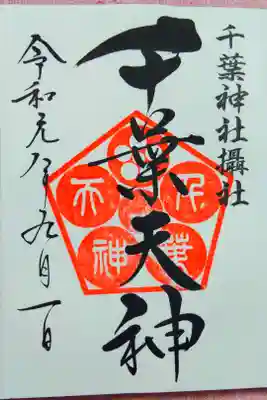 千葉神社攝社
千葉天神
千葉
天神
令和元年九月一日